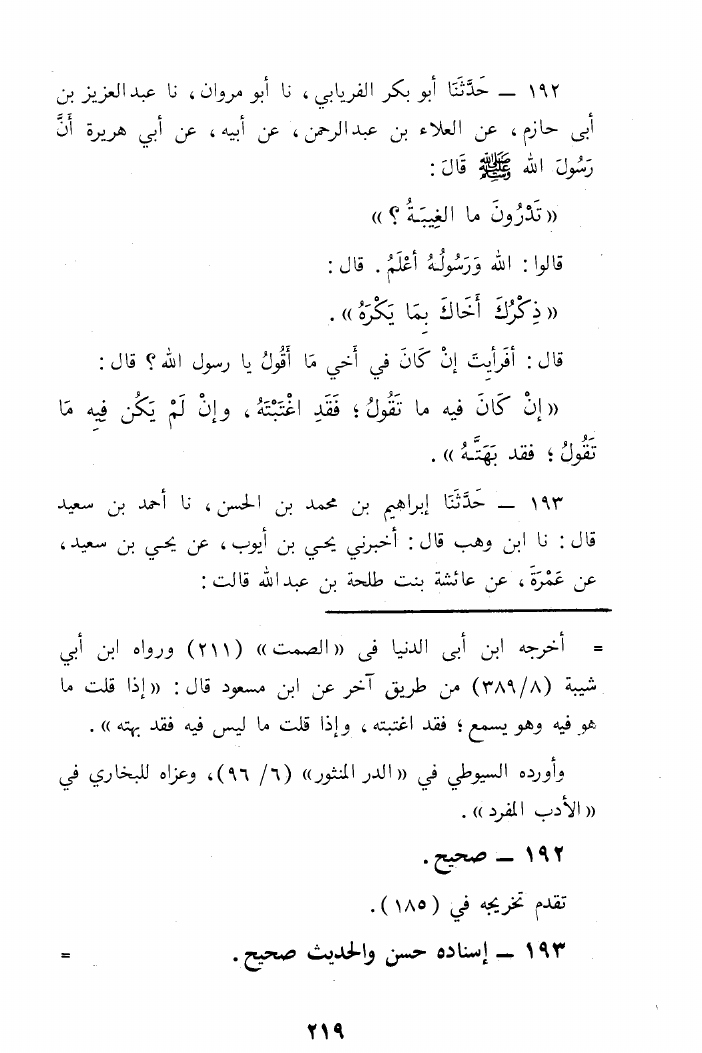 ١٩٢ ـ حَدَّثَنَا أبو بكر الفريابي، نا أبو مروان، نا عبدالعزيز بن
أبى حازم، عن العلاء بن عبدالرحمن، عن أبيه، عن أبي هريرة أَنَّ
رَسُولَ الله ﷺ قَالَ:
«تَدْرُونَ ما الغِيبَةُ؟»
قالوا: الله وَرَسُولُهُ أعْلَمُ. قال:
«ذِكْرُكَ أَخَاكَ بِمَا يَكْرَهُ».
قال: أفَرأيتَ إنْ كَانَ في أخي مَا أَقُولُ يا رسول الله؟ قال:
«إنْ كَانَ فيه ما تَقُولُ؛ فَقَدِ اغْتَبْتَهُ، وإنْ لَمْ يَكُن فِيهِ مَا
تَقُولُ؛ فقد بَهَتَّهُ».
١٩٣ ـ حَدَّثَنَا إبراهيم بن محمد بن الحسن، نا أحمد بن سعيد
قال: نا ابن وهب قال: أخبرني يحيى بن أيوب، عن يحيى بن سعيد،
عن عَمْرَةَ، عن عائشة بنت طلحة بن عبدالله قالت:
= أخرجه ابن أبى الدنيا فى «الصمت» (٢١١) ورواه ابن أبي
شيبة (٣٨٩/٨) من طريق آخر عن ابن مسعود قال: «إذا قلت ما
هو فيه وهو يسمع؛ فقد اغتبته، وإذا قلت ما ليس فيه فقد بهته».
وأورده السيوطي في «الدر المنثور» (٦/ ٩٦)، وعزاه للبخاري في
«الأدب المفرد».
١٩٢ ـ صحيح.
تقدم تخريجه في (١٨٥).
١٩٣ ـ إسناده حسن والحديث صحيح. =
٢١٩